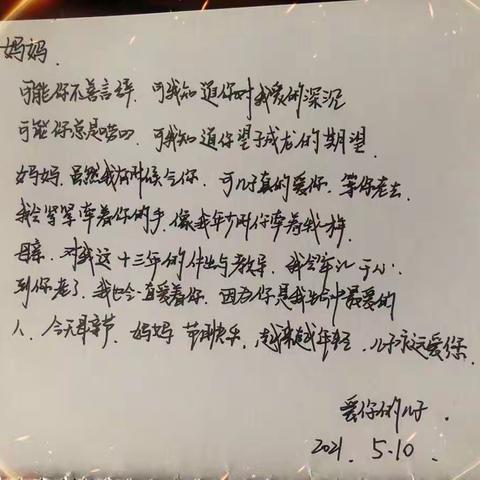 妈妈.
可能你不善言辞. 可我知道你对我爱的深沉
可能你总是唠叨. 可我知道你望子成龙的期望.
妈妈. 虽然我有时候气你. 可儿子真的爱你. 等你老去.
我会紧紧牵着你的手. 像我年少时你牵着我一样.
母亲. 对我这十三年的付出与教导. 我会牢记于心.
到你老了. 我也会一直爱着你. 因为你是我生命中最爱的
人. 今天母亲节. 妈妈 节日快乐. 越来越年轻. 儿子永远爱你.
爱你的儿子.
2021. 5.10.